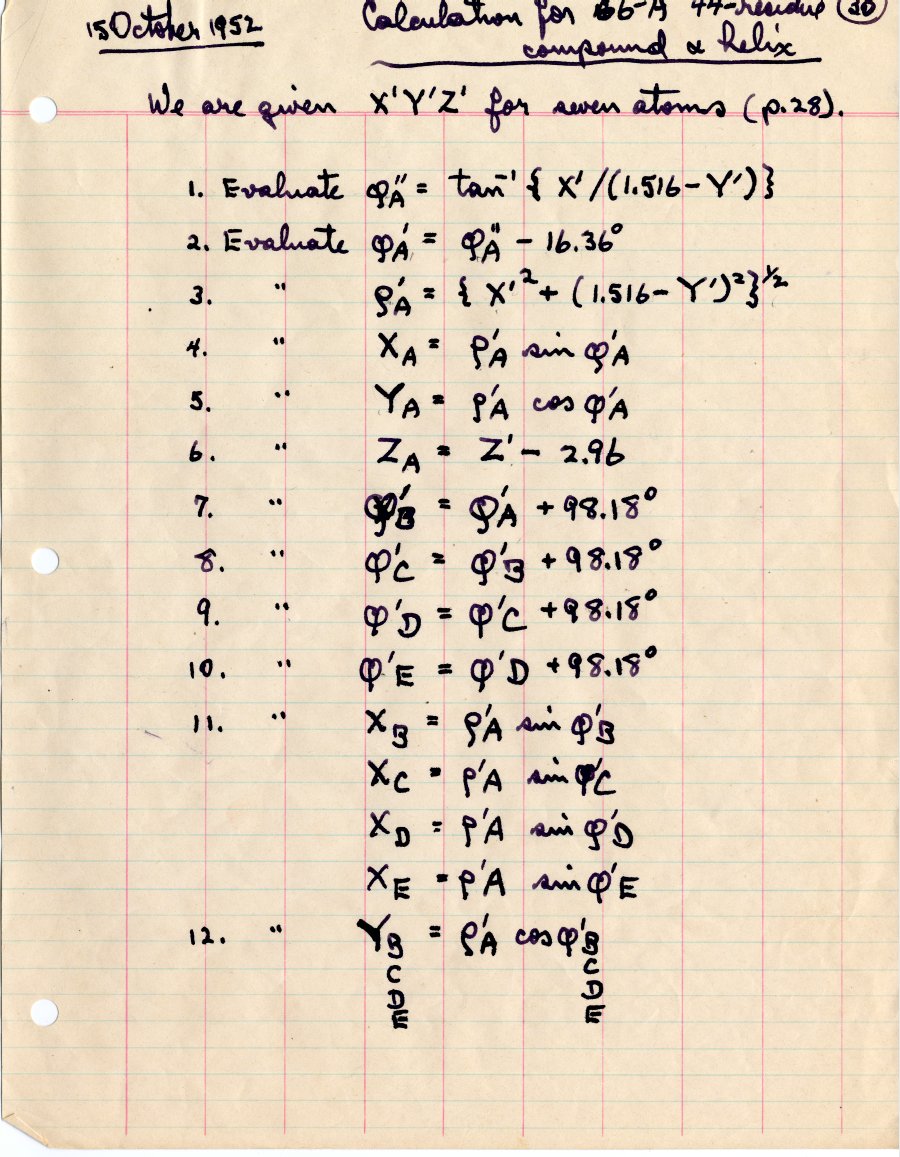 15 October 1952
Calculation for 66-A 44-residue 30
compound α helix
We are given X'Y'Z' for seven atoms (p.28).
1. Evaluate φ''A = tan⁻¹ { X'/(1.516 - Y')}
2. Evaluate φ'A = φ''A - 16.36°
3. " ρ'A = { X'² + (1.516 - Y')²}^½
4. " XA = ρ'A sin φ'A
5. " YA = ρ'A cos φ'A
6. " ZA = Z' - 2.96
7. " φ'B = φ'A + 98.18°
8. " φ'C = φ'B + 98.18°
9. " φ'D = φ'C + 98.18°
10. " φ'E = φ'D + 98.18°
11. " XB = ρ'A sin φ'B
XC = ρ'A sin φ'C
XD = ρ'A sin φ'D
XE = ρ'A sin φ'E
12. " YB = ρ'A cos φ'B
C C
D D
E E